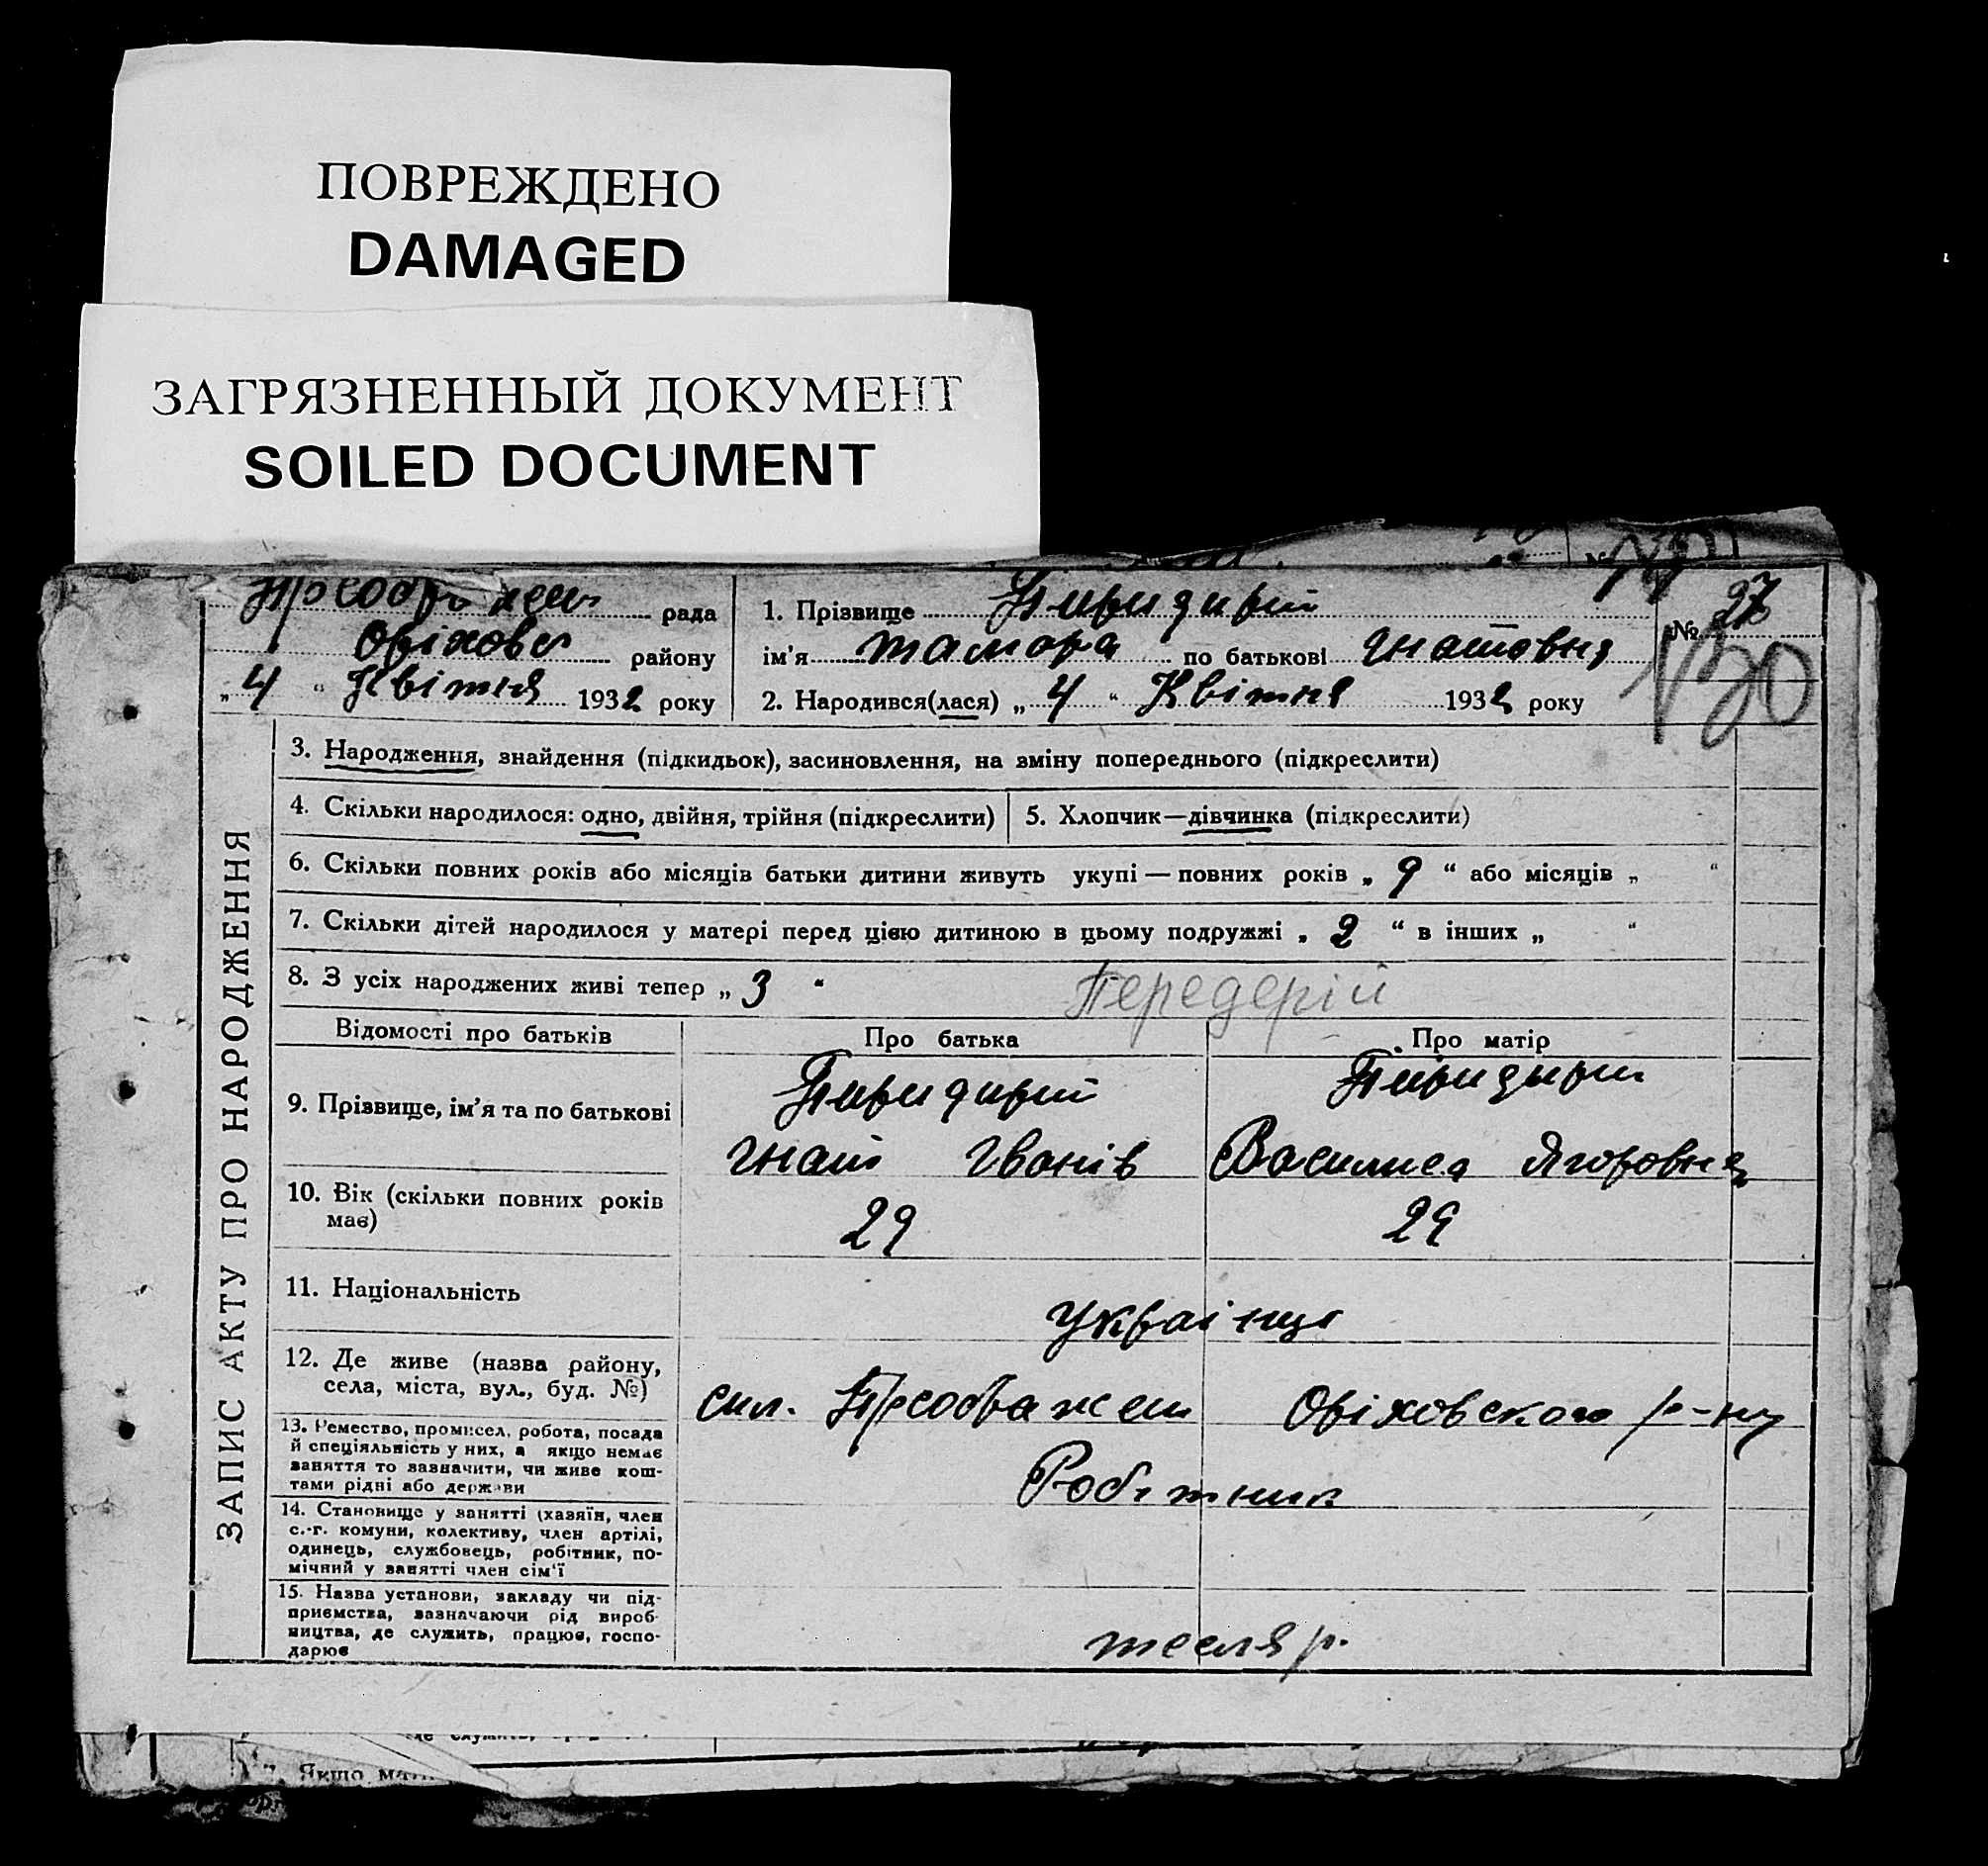 ПОВРЕЖДЕНО
DAMAGED
ЗАГРЯЗНЕННЫЙ ДОКУМЕНТ
SOILED DOCUMENT
рада
Оріхове району
„ 4 “ Квітня 1932 року
1. Прізвище Пиридирій
ім'я Тамара по батькові Гнатовня
2. Народився(лася) „ 4 “ Квітня 1932 року
№ 27
130
ЗАПИС АКТУ ПРО НАРОДЖЕННЯ
3. Народження, знайдення (підкидьок), засиновлення, на зміну попереднього (підкреслити)
4. Скільки народилося: одно, двійня, трійня (підкреслити)
5. Хлопчик—дівчинка (підкреслити)
6. Скільки повних років або місяців батьки дитини живуть укупі — повних років „ 9 “ або місяців „ “
7. Скільки дітей народилося у матері перед цією дитиною в цьому подружжі „ 2 “ в інших „ “
8. З усіх народжених живі тепер „ 3 “
Передерій
Відомості про батьків
Про батька
Про матір
9. Прізвище, ім'я та по батькові
Пиридирій
Гнат Іванів
Пиридирій
Василиса Ягоровня
10. Вік (скільки повних років
має)
29
29
11. Національність
українці
12. Де живе (назва району,
села, міста, вул., буд. №)
сел. Преображен Оріховского р-ну
13. Ремество, промисел, робота, посада
й спеціяльність у них, а якщо немає
заняття то зазначити, чи живе кош-
тами рідні або держави
Робітник
14. Становище у занятті (хазяїн, член
с.-г. комуни, колективу, член артілі,
одинець, службовець, робітник, по-
мічний у занятті член сім'ї
15. Назва установи, закладу чи під-
приємства, зазначаючи рід вироб-
ництва, де служить, працює, госпо-
дарює
тесляр.
Якщо